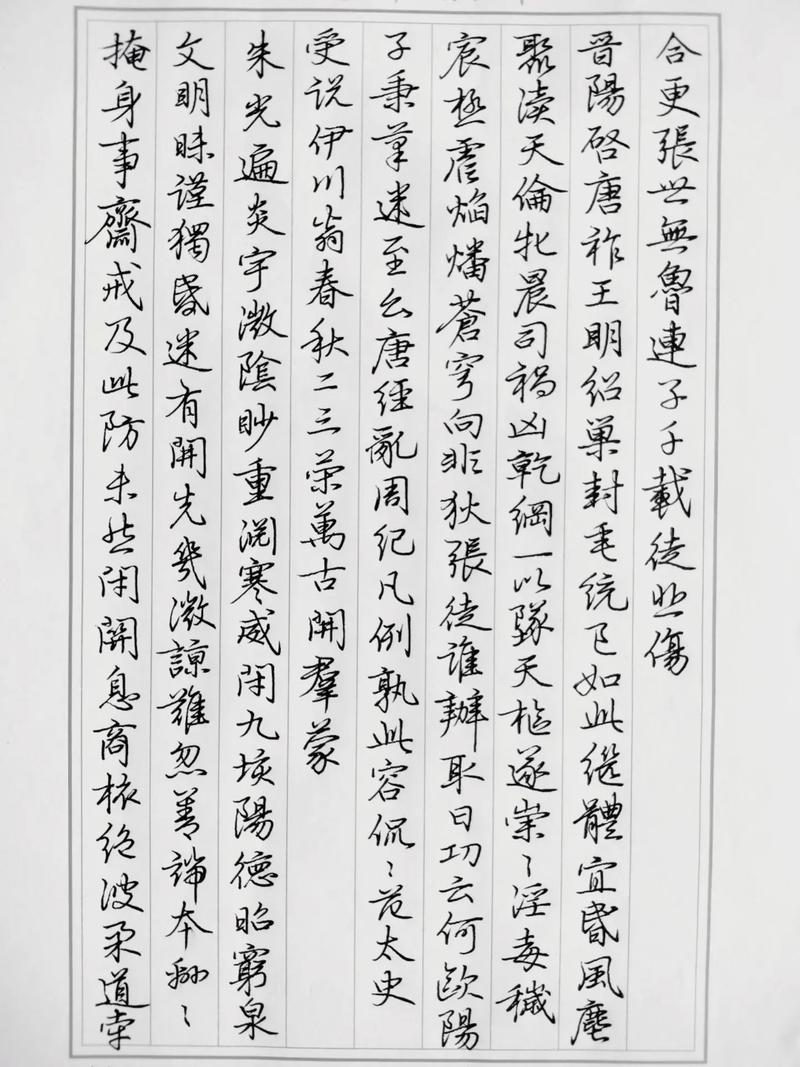 合更張世無魯連子千載徒悲傷
晉陽啓唐祚王明紹巢封垂統已如此繼體宜昏風麀
聚瀆天倫牝晨司禍凶乾綱一以墜天樞遂崇〻淫毒穢
宸極虐焰燔蒼穹向非狄張徒誰辦取日功云何歐陽
子秉筆迷至公唐經亂周紀凡例孰此容侃〻范太史
受說伊川翁春秋二三策萬古開羣蒙
朱光遍炎宇微陰眇重淵寒威閉九垓陽德昭窮泉
文明昧謹獨昏迷有開先幾微諒難忽善端本緜〻
掩身事齋戒及此防未然閉關息商旅絕波柔道牽